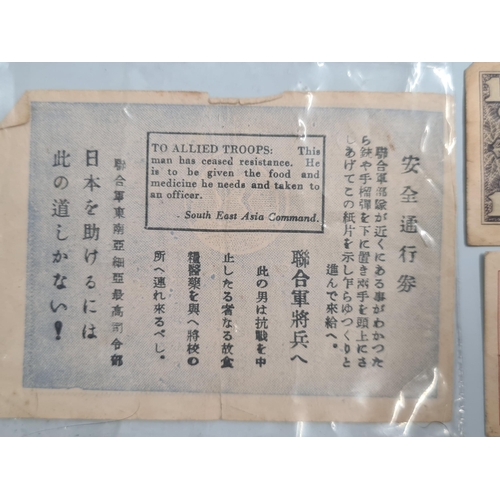 安全通行券
聯合軍部隊が近くにある事がわかつた
ら銃や手榴彈を下に置き兩手を頭上にさ
しあげてこの紙片を示し乍らゆつくりと
進んで来給へ。
TO ALLIED TROOPS: This
man has ceased resistance. He
is to be given the food and
medicine he needs and taken to
an officer.
- South East Asia Command.
聯合軍將兵へ
此の男は抗戰を中
止したる者なる故食
糧醫藥を與へ將校の
所へ連れ來るべし。
聯合軍東南亞細亞最高司令部
日本を助けるには
此の道しかない!